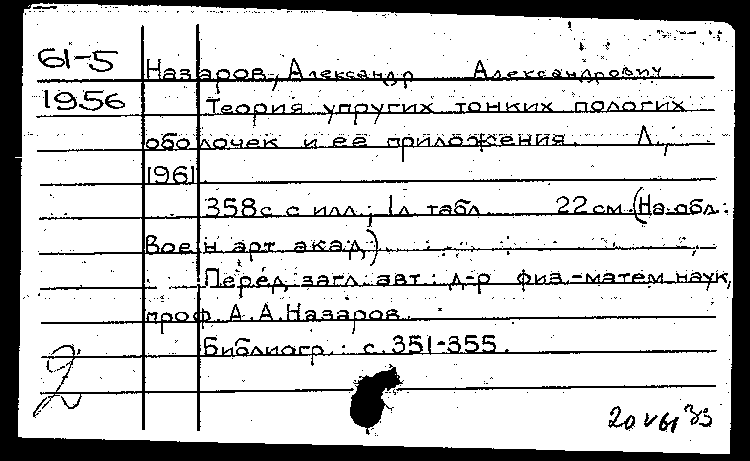 61-5 Назаров, Александр Александрович
1956 Теория упругих тонких пологих
оболочек и её приложения. Л.,
1961
358с с илл.; 1л. табл. 22 см. (На обл.:
Воен арт. акад.)
Перед загл. авт.: д-р физ.-матем. наук,
проф. А. А. Назаров.
Библиогр.: с. 351-355.
2